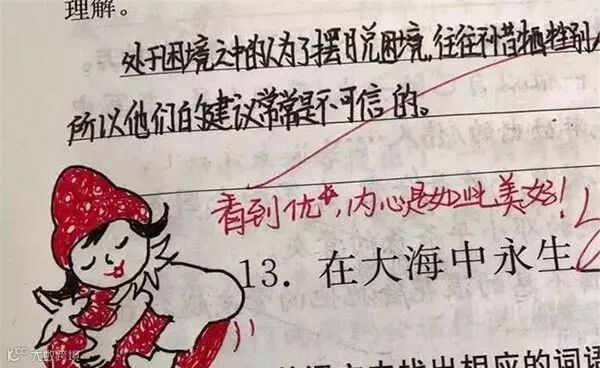 理解。
处于困境之中的人为了摆脱困境,往往不惜牺牲别人
所以他们的建议常常是不可信的。
看到优*,内心是如此美好!
13. 在大海中永生
找出相应的词语
大数跨境